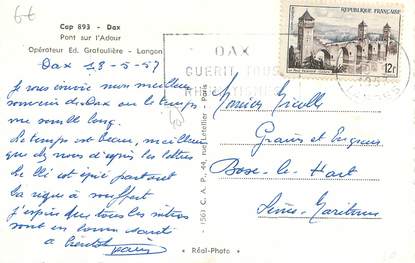 6€
Cap 893 - Dax
Pont sur l'Adour
Opérateur Ed. Grafoulière - Langon
Dax 13-5-57
Je vous envoie mon meilleur
souvenir de Dax ou le temps
me semble long.
Le temps est beau, meilleur
que chez nous d'après les lettres
le blé est épié partout
la vigne a souffert
j'espère que tous les vôtres
sont en bonne santé
a bientôt
1561 C. A. P., 44, rue Letellier - Paris
* Réal-Photo *
DAX
GUERIT TOUS
RHUMATISMES
REPUBLIQUE FRANÇAISE
12F
POSTES
Monsieur
Grains et Engrais
Bosc-le-Hard
Seine-Maritime